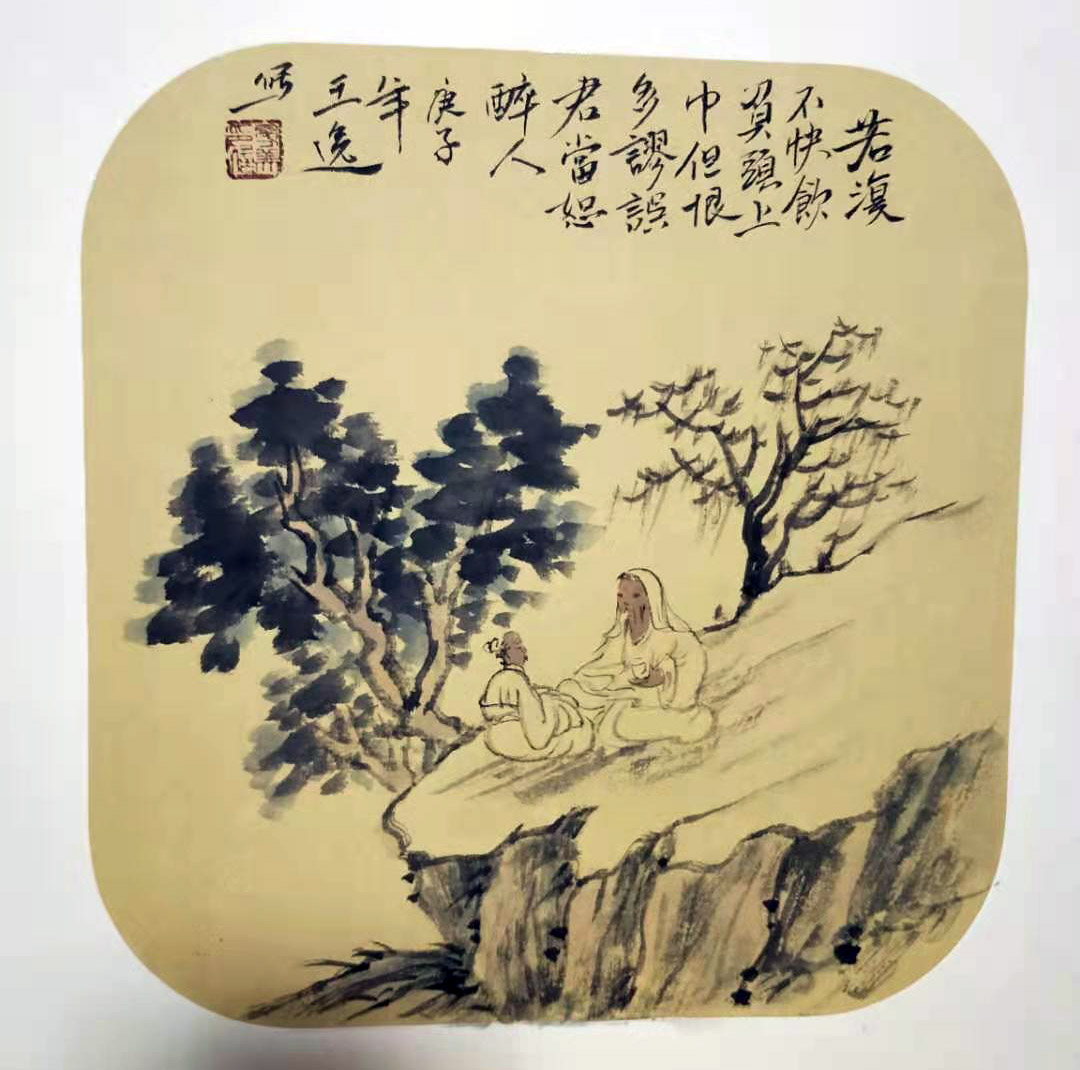 若復
不快飲
負頭上
巾但恨
多謬誤
君當恕
醉人
庚子
年
王逸
寫